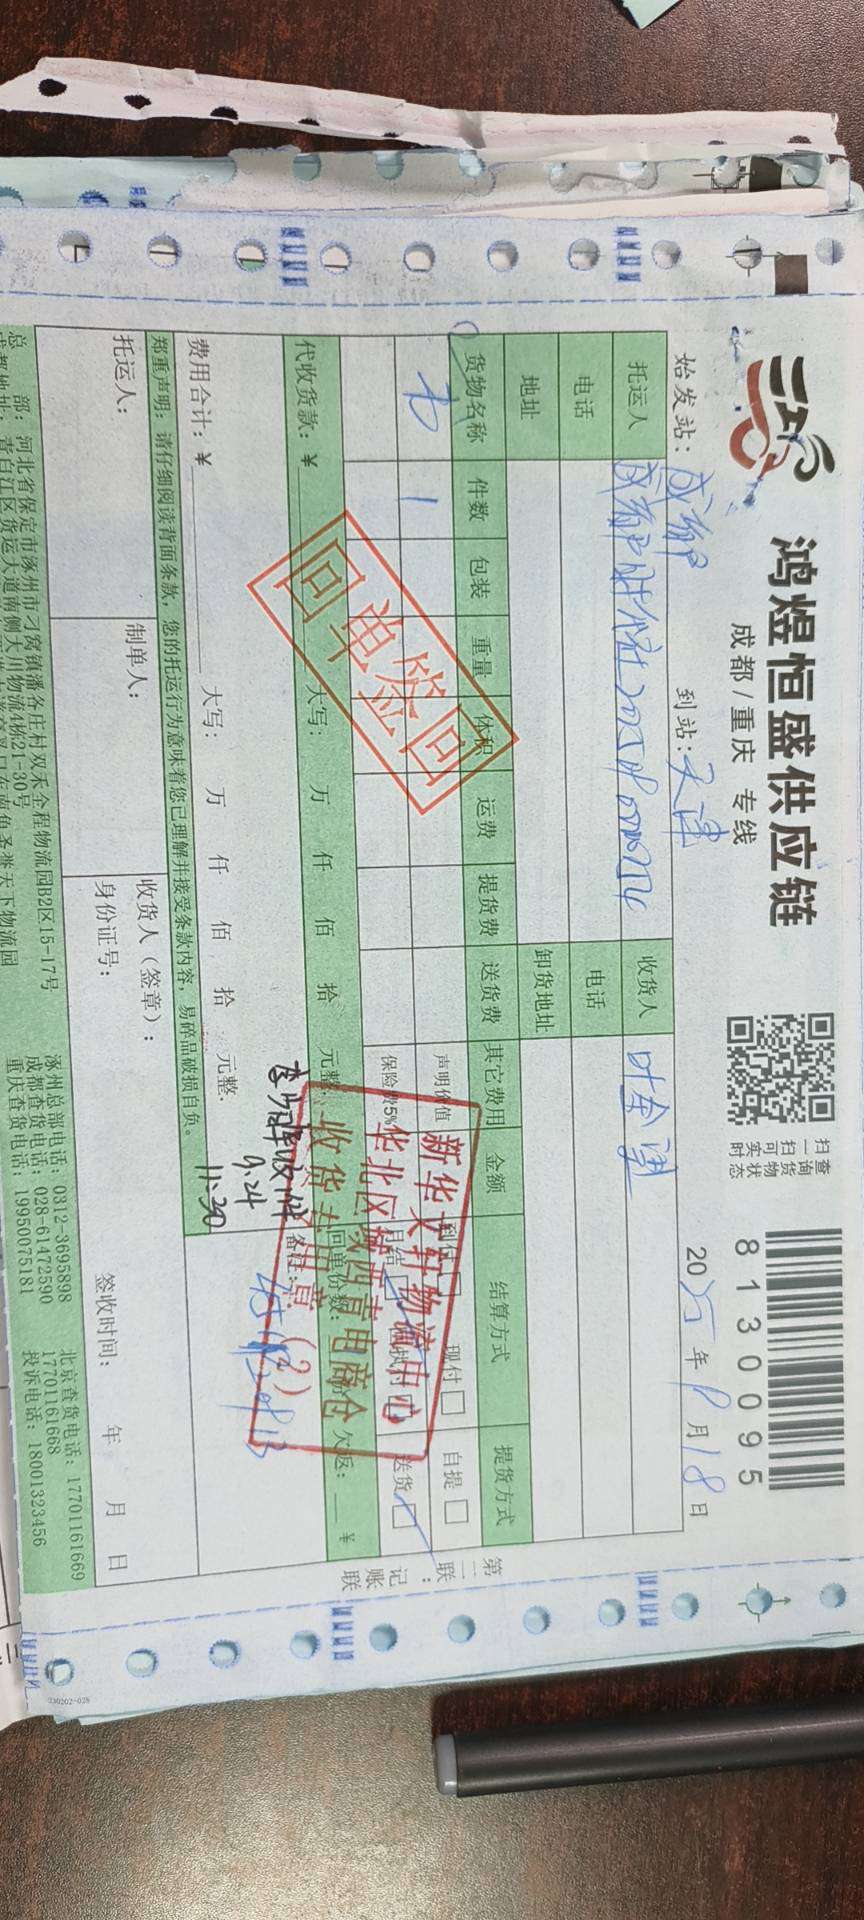 鸿煜恒盛供应链
成都/重庆 专线
扫一扫
查询货物
可实时状态
8130095
始发站：成都 到站：天津 2025年9月18日
托运人 收货人
电话 电话
地址 卸货地址
货物名称 件数 包装 重量 体积 运费 提货费 送货费 其它费用 金额 结算方式 提货方式
书 1 声明价值 到付 现付 自提
保险费5‰ 月结 送货
代收货款：¥ 大写： 万 仟 佰 拾 元整. 回单份数： 欠返： ¥
费用合计：¥ 大写： 万 仟 佰 拾 元整. 备注：
郑重声明：请仔细阅读背面条款，您的托运行为意味着您已理解并接受条款内容，易碎品破损自负。
托运人： 制单人： 收货人（签章）：
身份证号： 签收时间： 年 月 日
总 部：河北省保定市涿州市刁窝镇潘各庄村双禾全程物流园B2区15-17号 涿州总部电话：0312-3695898 北京查货电话：17701161669
成都地址：青白江区货运大道南侧大川物流4栋21-30号 成都查货电话：028-61472590 17701161668
重庆查货电话：19950075181 投诉电话：18001323456
第二联：记账联
回单签回
新华文轩物流中心
华北区域西青电商仓
收货专用章
(2)
9.24
11:30
230202-028